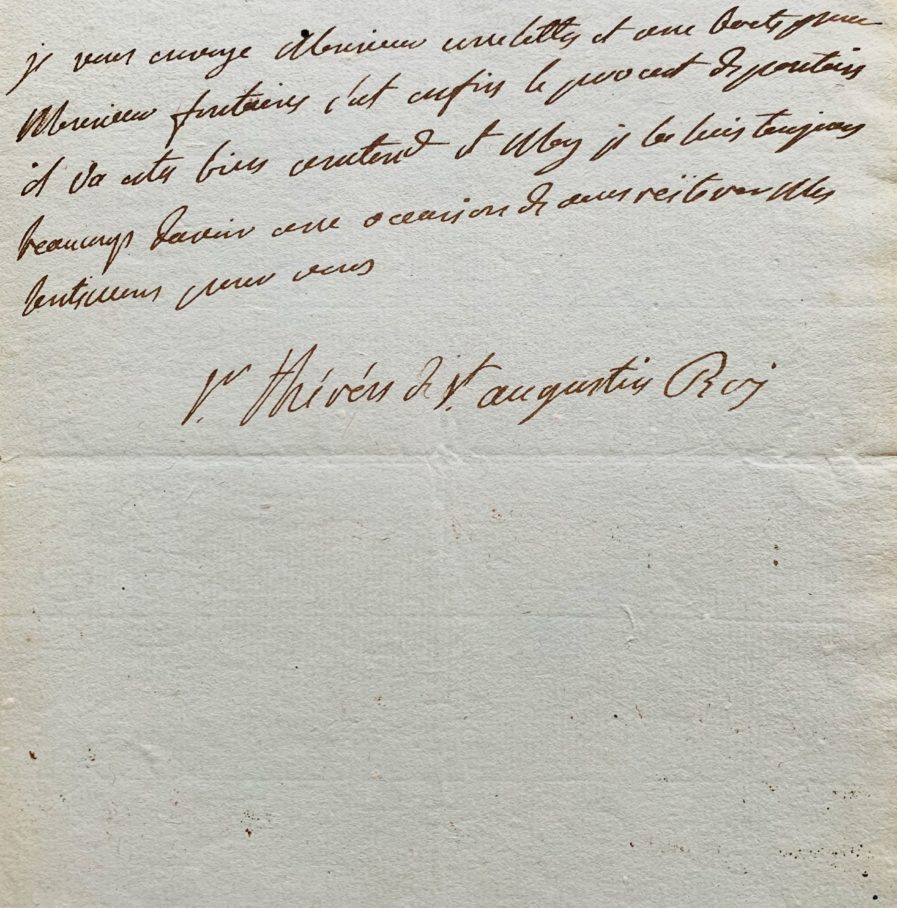 je vous envoye Monsieur une lettre et une boete pour
Monsieur fontaine c'est enfin le procest de pontain
il va etre bien content et Moy je le suis toujours
beaucoup davoir une occasion de vous reïterer Mes
sentimens pour vous
Sr thérése de St. augustin